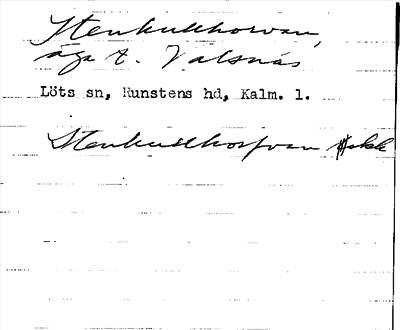 Stenkullhorvan,
äga t. Valsnäs
Löts sn, Runstens hd, Kalm. l.
Stenkullhorfvan